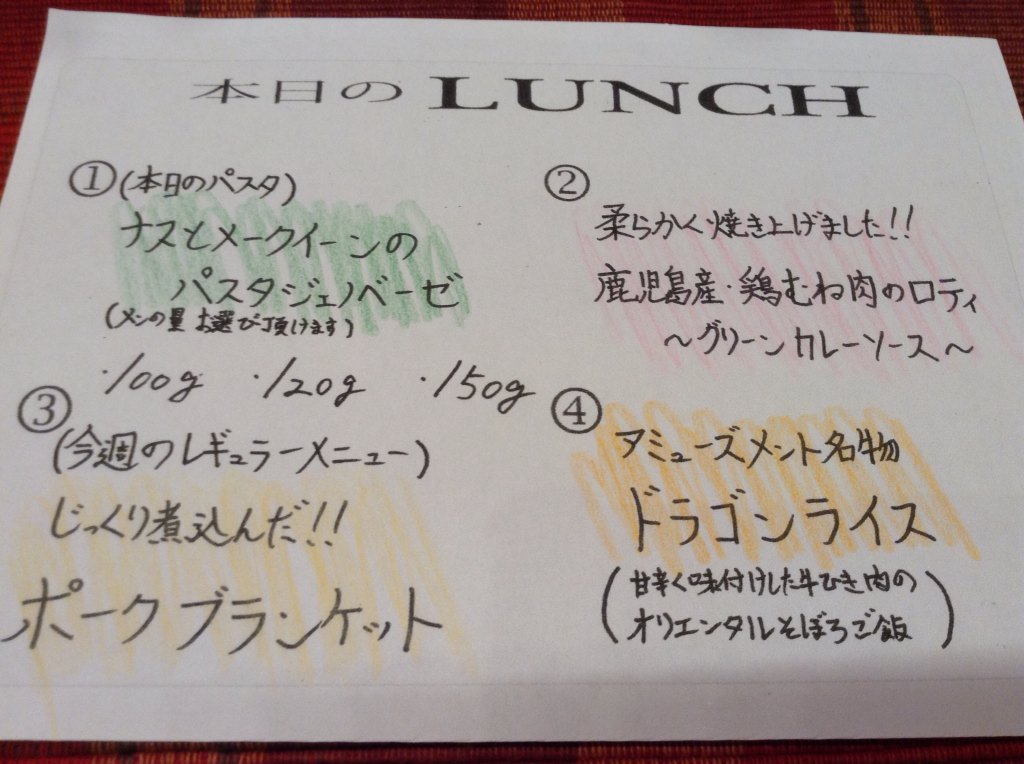 本日のLUNCH
①(本日のパスタ)
ナスとメークイーンの
パスタジェノベーゼ
(メンの量 お選び頂けます)
・100g ・120g ・150g
②
柔らかく焼き上げました!!
鹿児島産・鶏むね肉のロティ
～グリーンカレーソース～
③
(今週のレギュラーメニュー)
じっくり煮込んだ!!
ポークブランケット
④
アミューズメント名物
ドラゴンライス
(甘辛く味付けした牛ひき肉の
オリエンタルそぼろご飯)